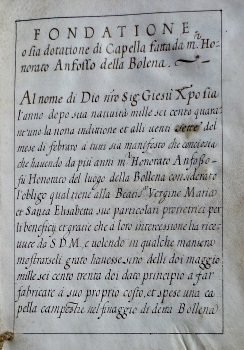 FONDATIONE
o sia dotatione di Capella fatta da m.r Ho-
norato Anfosso della Bolena.
Al nome di Dio nr̃o Sig Giesù Xpo sia
l'anno dopo sua natiuità mille sei cento quara
t'uno la nona inditione et alli uenti sette del
mese di febraro a tutti sia manifesto che conciosia
che hauendo da più anni m.r Honorato Anfosso
fù Honorato del luogo della Bollena considerato
l'obligo qual tiene alla Beatis.a Vergine Maria
et Santa Elisabetta sue particolari protetrici per
li beneficij et gratie che a loro intercessione ha rice-
uute da S.D.M. e uolendo in qualche maniera
mostrarseli grato hauesse sino delli doi maggio
mille sei cento trenta dei dato principio a far
fabricare à suo proprio costo, et spese una ca
pella campestre nel finaggio di detta Bollena